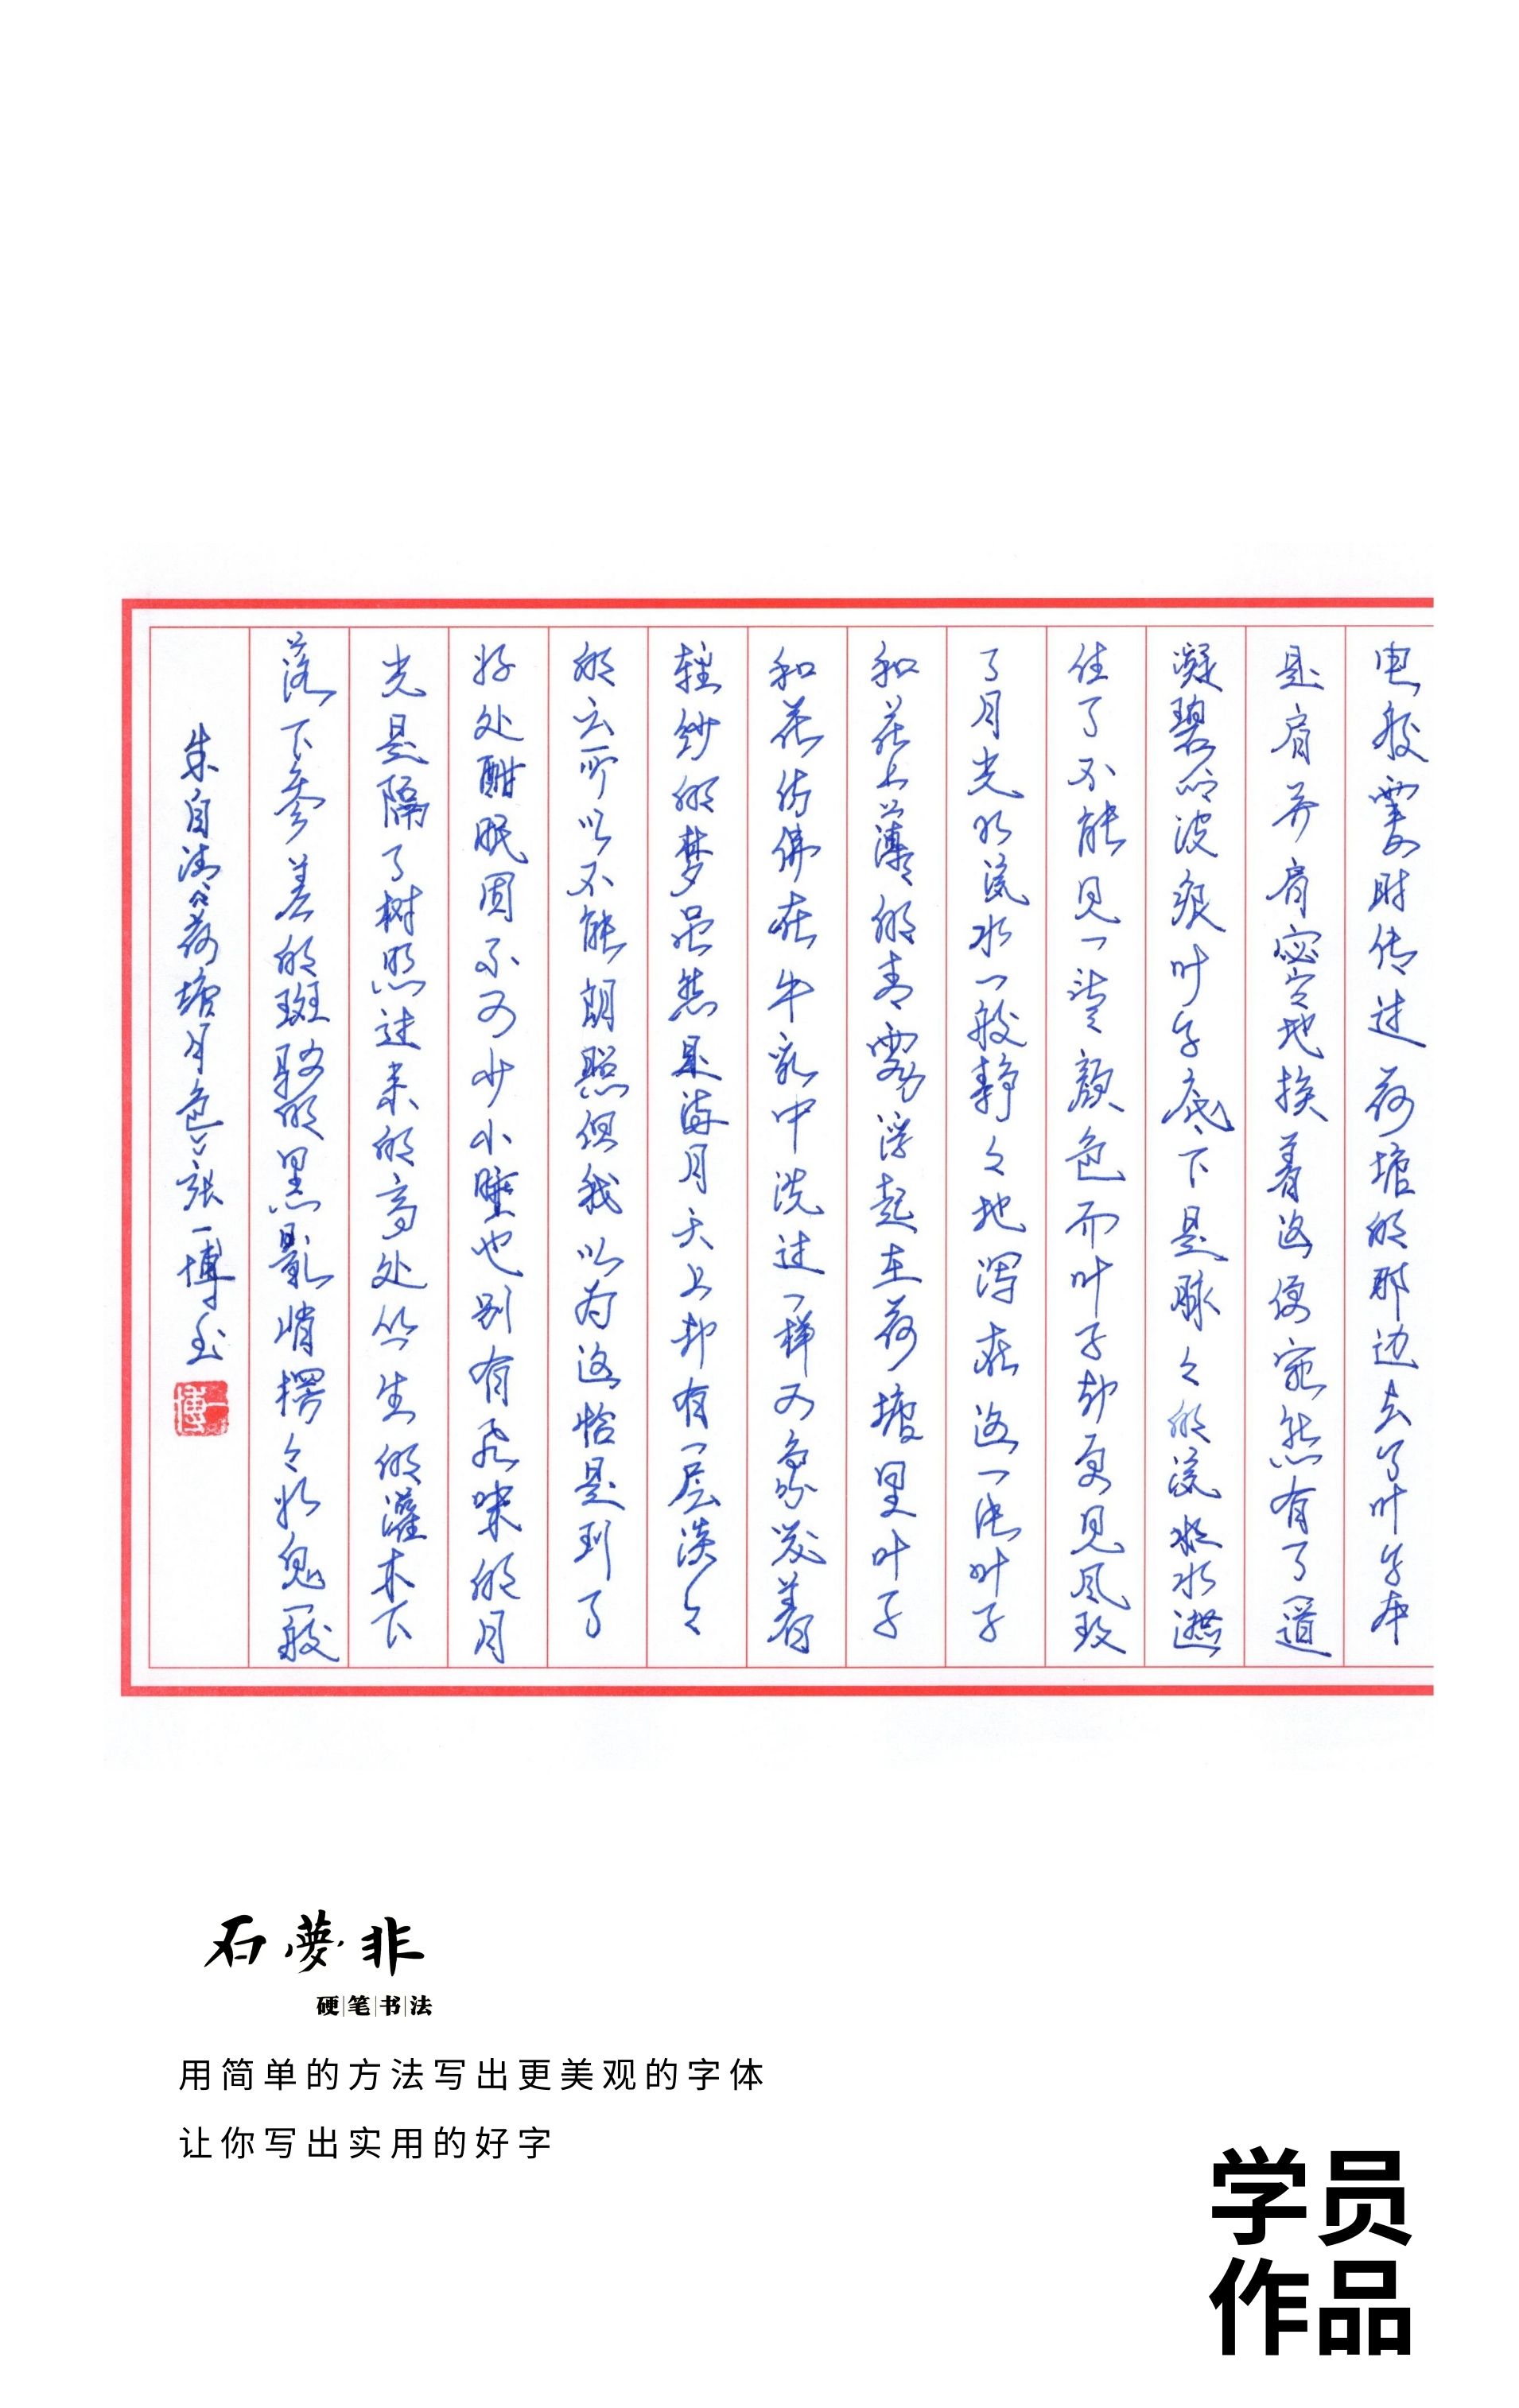 电般霎时传过荷塘的那边去了叶子本
是肩并肩密々地挨着这便宛然有了一道
凝碧的波痕叶子底下是脉々的流水水遮
住了不能见一些颜色而叶子却更见风致
了月光如流水一般静々地泻在这一片叶子
和花上薄々的青雾浮起在荷塘里叶子
和花仿佛在牛乳中洗过一样又象笼着
轻纱的梦虽然是满月天上却有一层淡々
的云所以不能朗照但我以为这恰是到了
好处酣眠固不可少小睡也别有风味的月
光是隔了树照过来的高处丛生的灌木下
落下参差的斑驳的黑影峭楞々如鬼一般
朱自清《荷塘月色》张一博
一博
石夢非
硬笔书法
用简单的方法写出更美观的字体
让你写出实用的好字
学员
作品